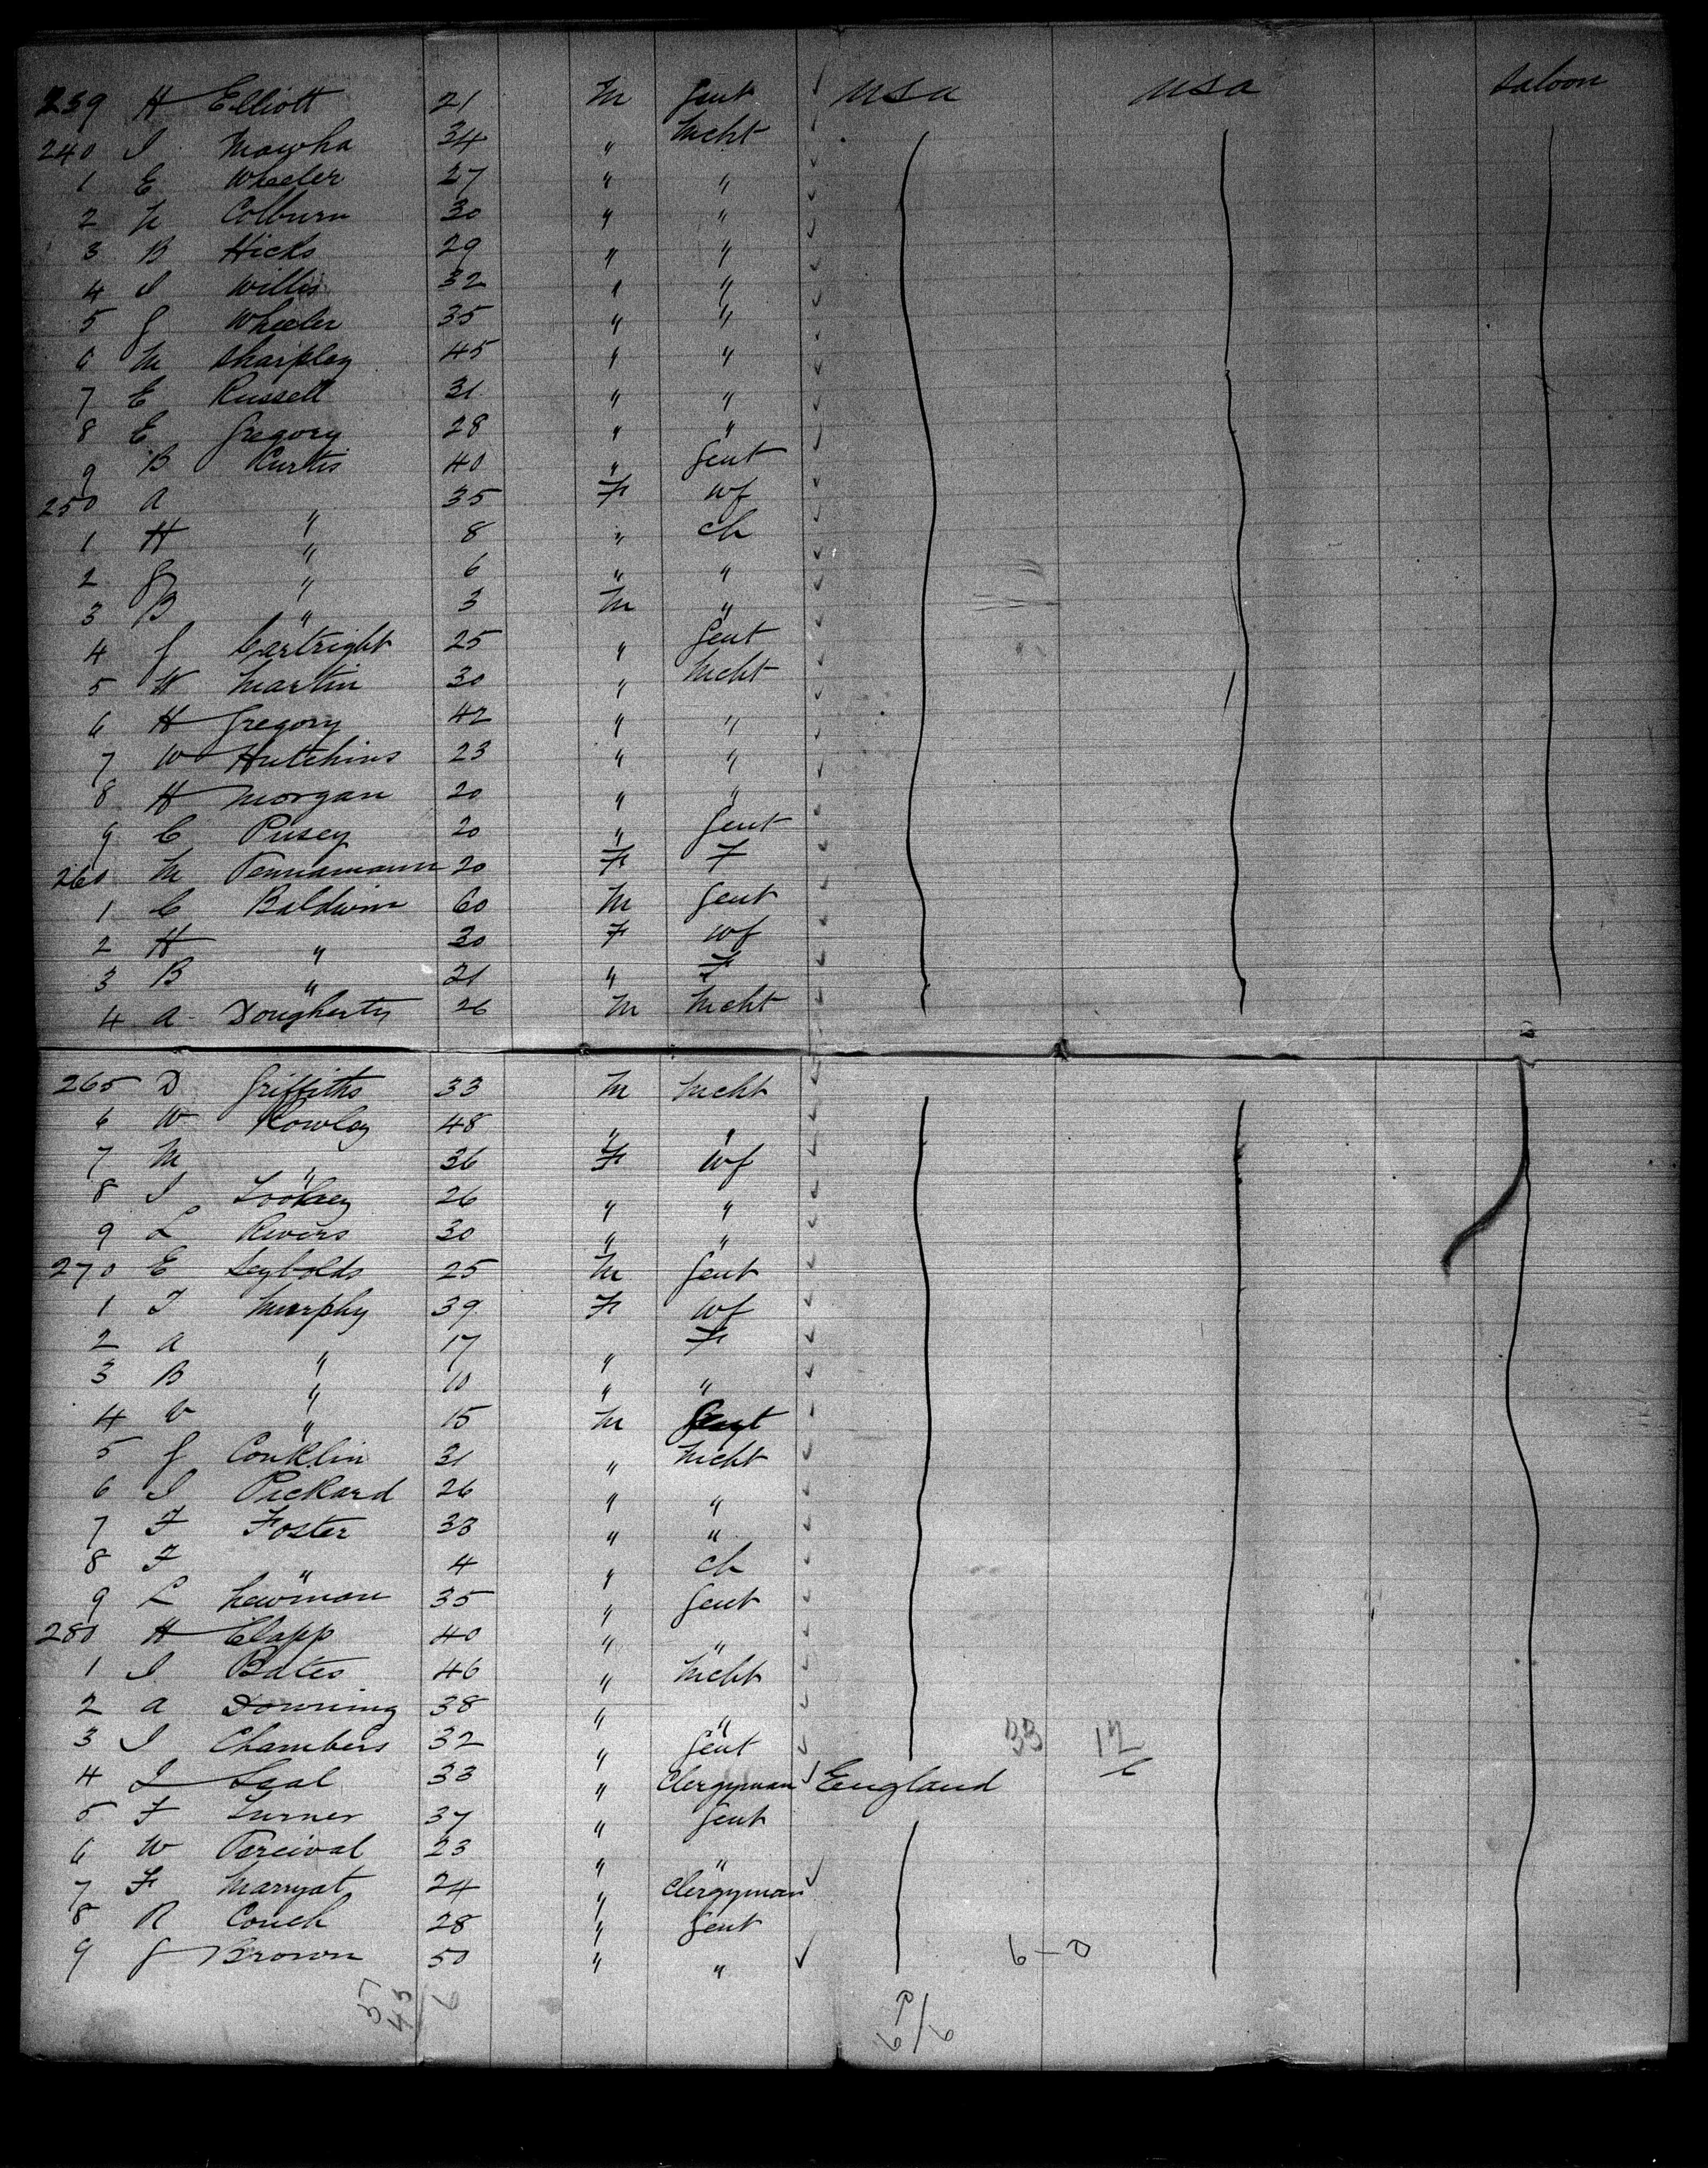 239 H Elliott 21 M Gent USA USA Saloon
240 I Mawha 34 " Mcht
1 E Wheeler 27 " "
2 N Colburn 30 " "
3 B Hicks 29 " "
4 I Willis 32 " "
5 J Wheeler 35 " "
6 M Sharpley 45 " "
7 E Russell 31 " "
8 E Gregory 28 " "
9 B Curtis 40 " Gent
250 A " 35 F wf
1 H " 8 " ch
2 G " 6 " "
3 B " 3 M "
4 J Cartright 25 " Gent
5 W Martin 30 " Mcht
6 H Gregory 42 " "
7 W Hutchins 23 " "
8 H Morgan 20 " "
9 C Pusey 20 " Gent
260 M Tennamann 20 F F
1 C Baldwin 60 M Gent
2 H " 30 F wf
3 B " 21 " F
4 A Dougherty 26 M Mcht
265 D Griffiths 33 M Mcht
6 W Rowley 48 " "
7 M " 36 F wf
8 I 26 " "
9 L Rivers 30 " "
270 E Seybolds 25 M Gent
1 T Murphy 39 F wf
2 A " 17 " F
3 B " 10 " "
4 V " 15 M Gent
5 J Conklin 31 " Mcht
6 I Pickard 26 " "
7 F Foster 38 " "
8 F " 4 " ch
9 L Newman 35 " Gent
280 H Clapp 40 " "
1 I Bates 46 " Mcht
2 A Downing 38 " "
3 I Chambers 32 " Gent 33 12
4 I Seal 33 " Clergyman England 6
5 F Turner 37 " Gent
6 W Percival 23 " "
7 F Marryat 24 " Clergyman
8 R Couch 28 " Gent
9 J Brown 50 " " 6-0